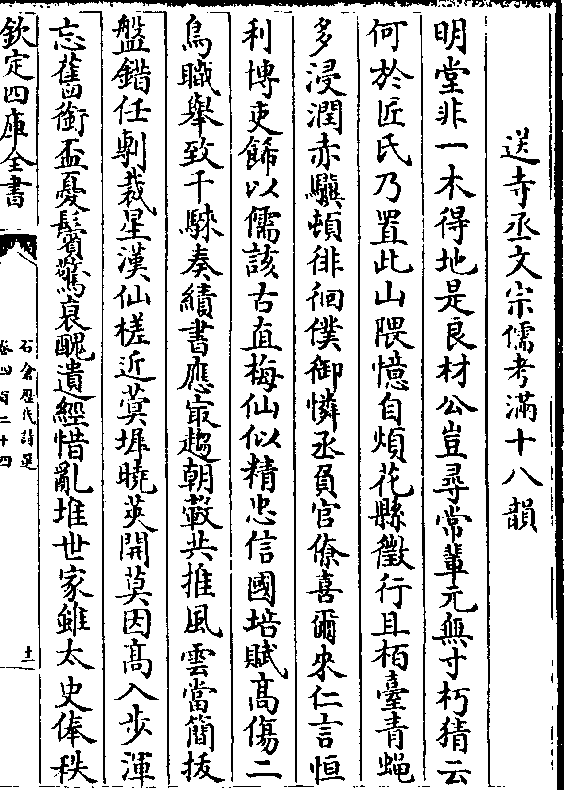 送寺丞文宗儒考滿十八韻
明堂非一木得地是良材公豈尋常輩元無寸朽猜云
何於匠氏乃置此山隈憶自煩花縣徵行且栢臺青蝇
多浸潤赤驥頓徘徊僕御憐丞負官僚喜爾來仁言恒
利博吏餙以儒該古直梅仙似精忠信國培賦髙傷二
鳥職舉致千騋奏績書應㝡趨朝轂共推風雲當簡拔
盤錯任剸裁星漢仙槎近蓂墀曉英開莫因髙入步渾
忘舊銜盃憂鬢驚衰醜遺經惜亂堆世家雖太史俸秩
欽定四庫全書
石倉歴代詩選
卷四百二十四
十一